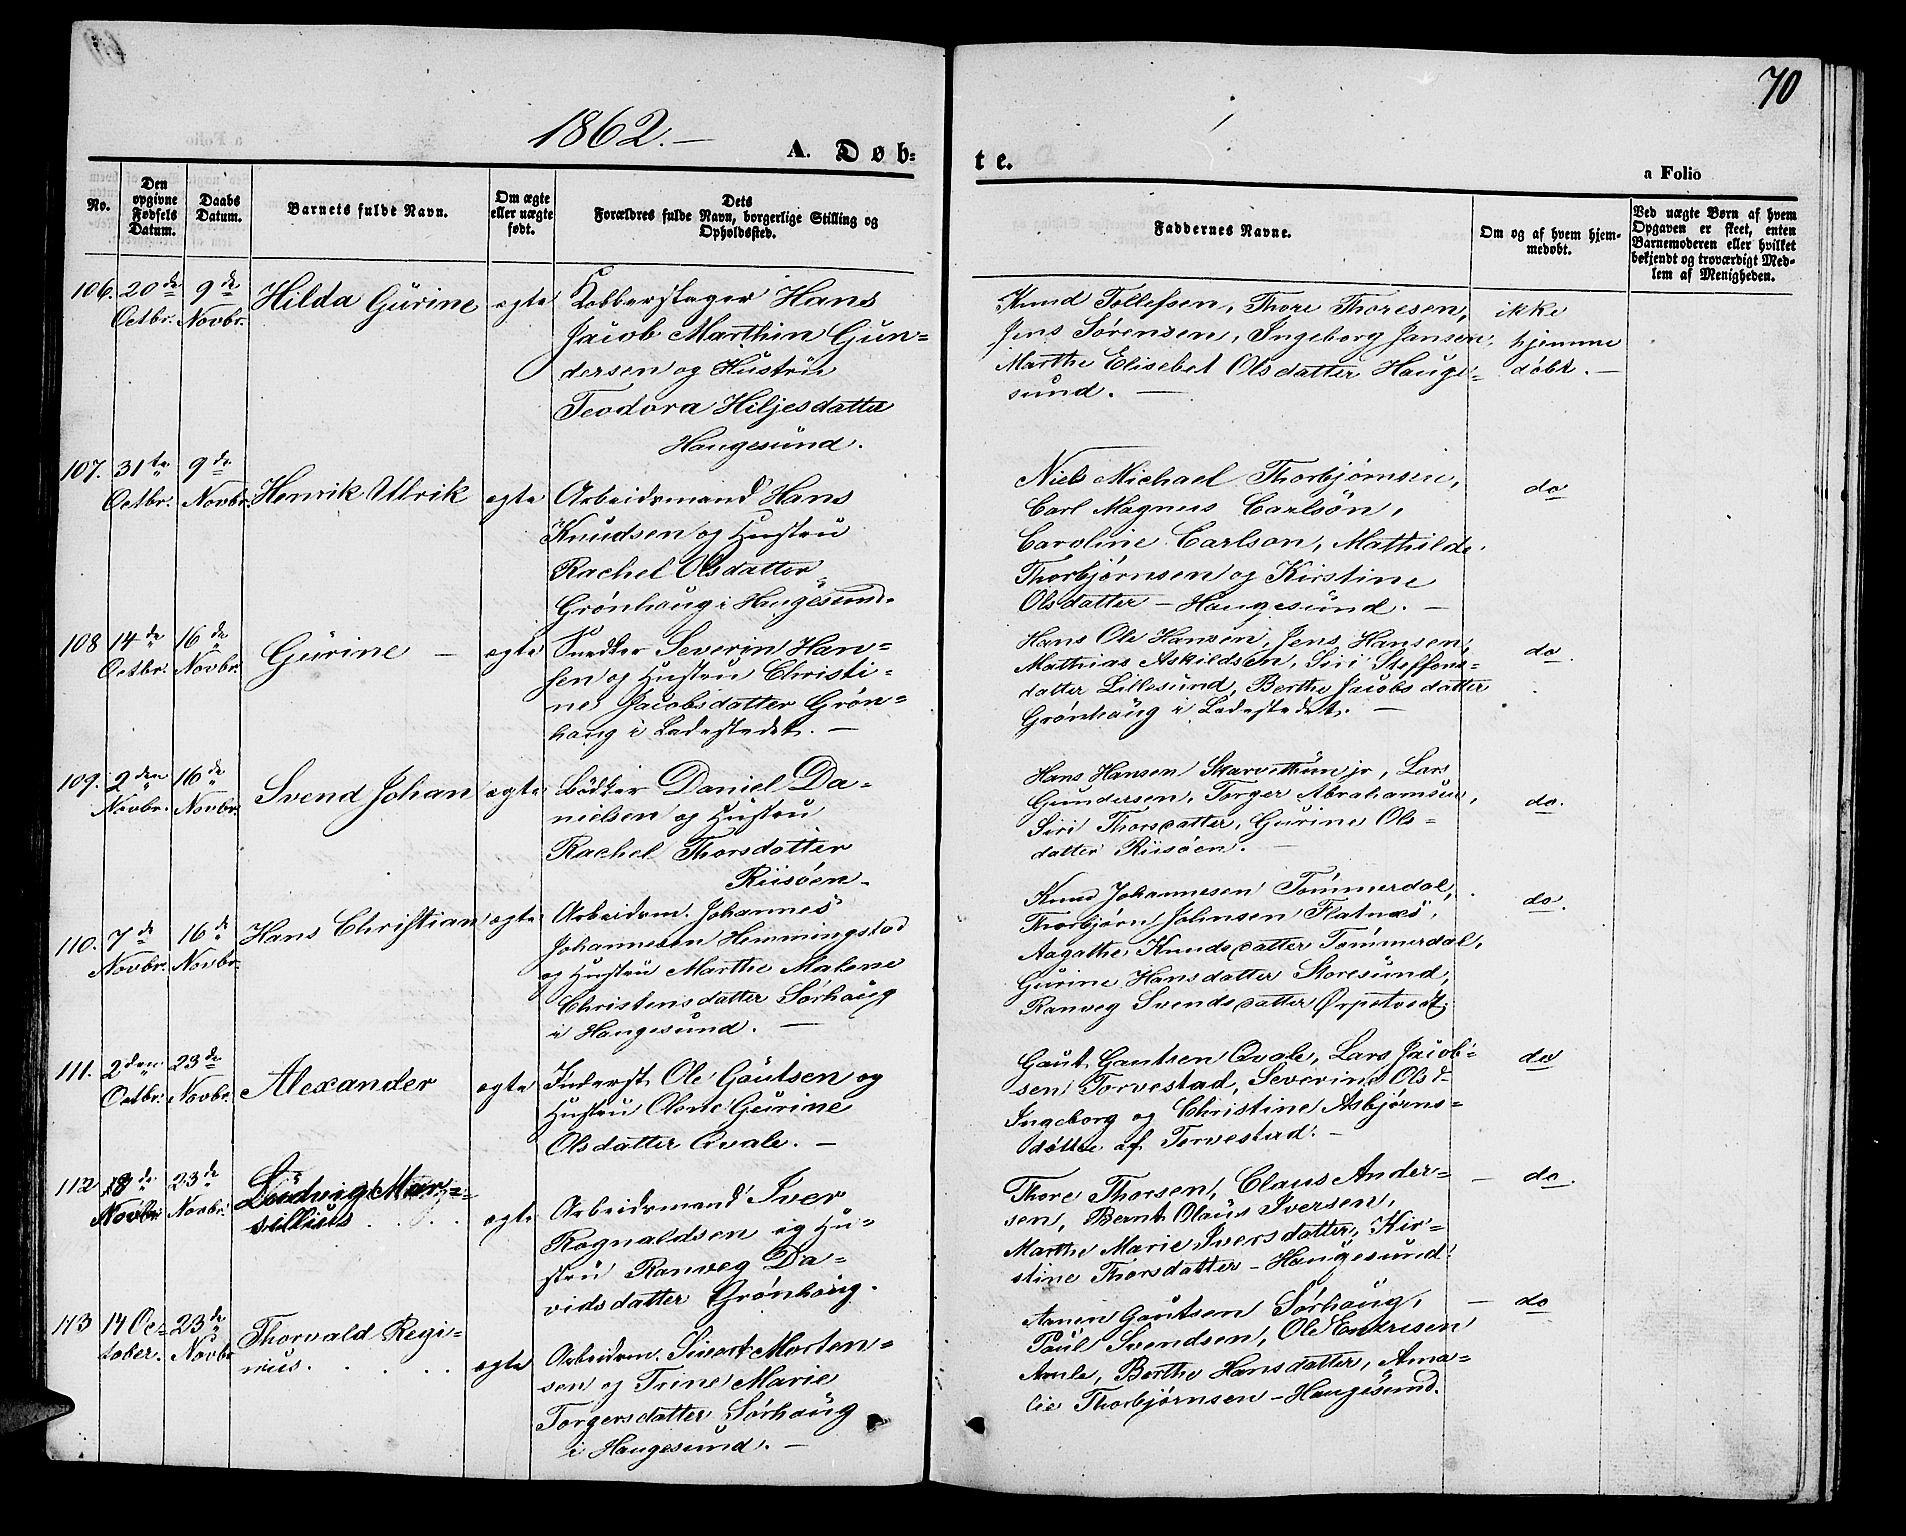 70
1862.—
A. Døb=
te.
a Folio
No.
Den opgivne Fødsels Datum.
Daabs Datum.
Barnets fulde Navn.
Om ægte eller uægte født.
Dets Forældres fulde Navn, borgerlige Stilling og Opholdssted.
Faddernes Navne.
Om og af hvem hjemmedøbt.
Ved uægte Børn af hvem Opgaven er skeet, enten Barnemoderen eller hvilket bekjendt og troværdigt Medlem af Menigheden.
106. 20de Octbr. 9de Novbr. Hilda Gurine ægte
Kobberslager Hans
Jacob Marthin Gun=
dersen og Hustru
Teodora Hiljesdatter
Haugesund.
Knud Tollefsen, Thore Thoresen,
Jens Sørensen, Ingeborg Jansen,
Marthe Elisebet Olsdatter Hauge=
sund. —
ikke
hjemme
døbt. —
107. 31te Octbr. 9de Novbr. Henrik Ulrik ægte
Arbeidsmand Hans
Knudsen og Hustru
Rachel Olsdatter
Grønhaug i Haugesund.
Niels Michael Thorbjørnsen,
Carl Magnus Carlsøn,
Caroline Carlson, Mathilde
Thorbjørnsen og Kirstine
Olsdatter — Haugesund. —
do
108 14de Octbr. 16de Novbr. Gurine — ægte
Snedker Severin Han=
sen og Hustru Christi=
ne Jacobsdatter Grøn=
haug i Ladestedet. —
Hans Ole Hansen, Jens Hansen,
Mathias Askildsen, Siri Steffens=
datter Lillesund, Berthe Jacobsdatter
Grønhaug i Ladestedet. —
do.
109. 2den Novbr. 16de Novbr. Svend Johan ægte
Bødker Daniel Da=
nielsen og Hustru
Rachel Thorsdatter
Riisøen.
Hans Hansen Skarvethun jr, Lars
Gundersen, Torger Abrahamsen,
Siri Thorsdatter, Gurine Ols=
datter Riisøen. —
do.
110. 7de Novbr. 16de Novbr. Hans Christian ægte
Arbeidsm. Johannes
Johannesen Hemmingstad
og Hustru Marthe Malene
Christensdatter Sørhaug
i Haugesund. —
Knud Johannesen Tømmerdal,
Thorbjørn Johnsen Flatnæs,
Aagathe Knudsdatter Tømmerdal,
Gurine Hansdatter Storesund,
Ranveg Svendsdatter Ørpetvedt.
do.
111. 2den Octbr. 23de Novbr. Alexander ægte
Inderst Ole Gautsen og
Hustru Olene Gurine
Olsdatter Qvale. —
Gaut Gautsen Qvale, Lars Jacob=
sen Torvestad, Severine Olsd=
Ingeborg og Christine Asbjørns=
døttre af Torvestad. —
do
112 18de Novbr. 23de Novbr. Ludvig Mar=
sillius ægte
Arbeidsmand Iver
Rognaldsen og Hu=
stru Ranveg Da=
vidsdatter Grønhaug.
Thore Thorsen, Claus Ander=
sen, Bernt Olaus Iversen,
Marthe Marie Iversdatter, Kir=
stine Thorsdatter — Haugesund.
— do.
113 14 Oc=
tober. 23de Novbr Thorvald Regi=
nius. ægte
Arbeidsm. Sivert Morten=
sen og Trine Marie
Torgersdatter Sørhaug
i Haugesund. —
Gautsen Sørhaug,
Paul Svendsen, Ole
Berthe Hansdatter, Ama=
lie Thorbjørnsen — Haugesund.
— do